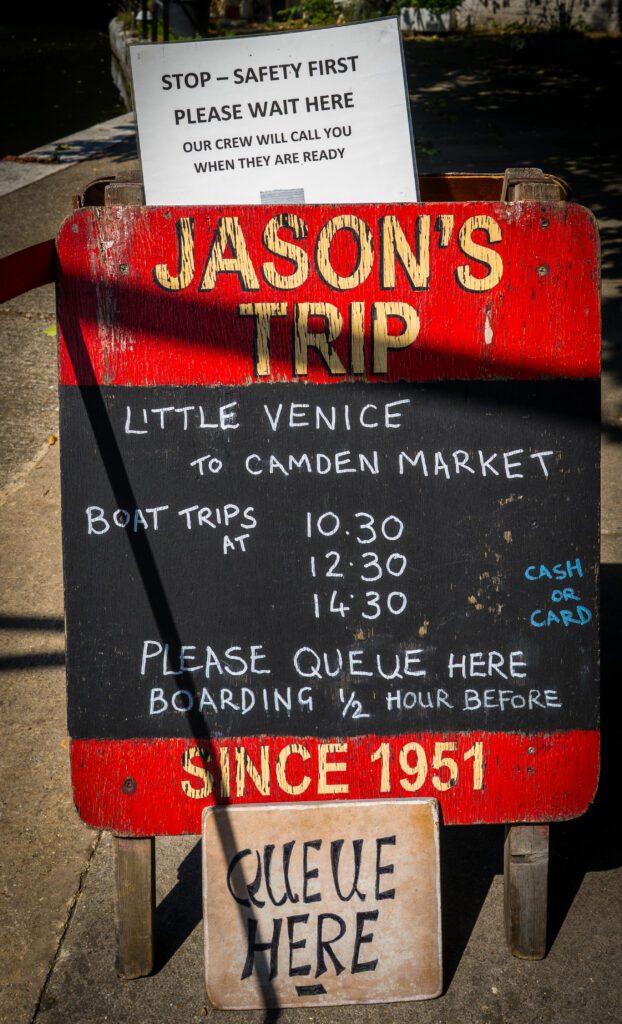 STOP – SAFETY FIRST
PLEASE WAIT HERE
OUR CREW WILL CALL YOU
WHEN THEY ARE READY
JASON'S
TRIP
LITTLE VENICE
TO CAMDEN MARKET
BOAT TRIPS AT
10.30
12:30
14:30
CASH
OR
CARD
PLEASE QUEUE HERE
BOARDING ½ HOUR BEFORE
SINCE 1951
QUEUE
HERE